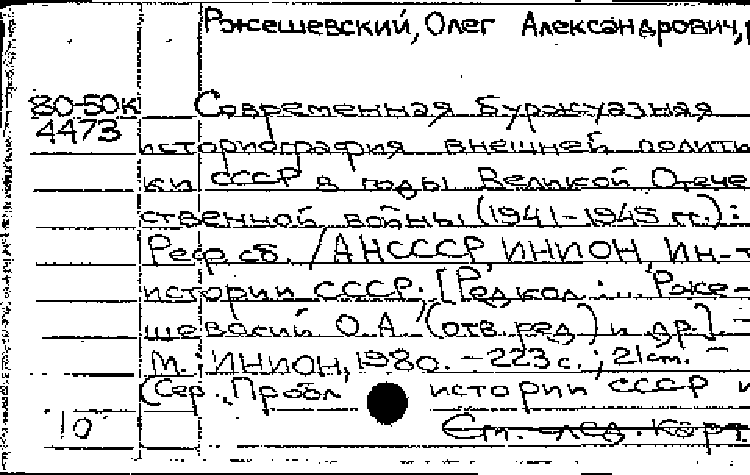 Ржешевский, Олег Александрович,
80-50к Современная буржуазная
4473
историография внешней полити
ки СССР в годы Великой Отече
ственной войны (1941-1945 гг.):
Реф. сб. / АН СССР ИНИОН, Ин-т
истории СССР; [Редкол.: ... Рже-
шевский О.А. (отв. ред.) и др.]. -
М.: ИНИОН, 1980. - 223 с.; 21 см. -
(Сер. "Пробл истории СССР и
10 См. след. карт